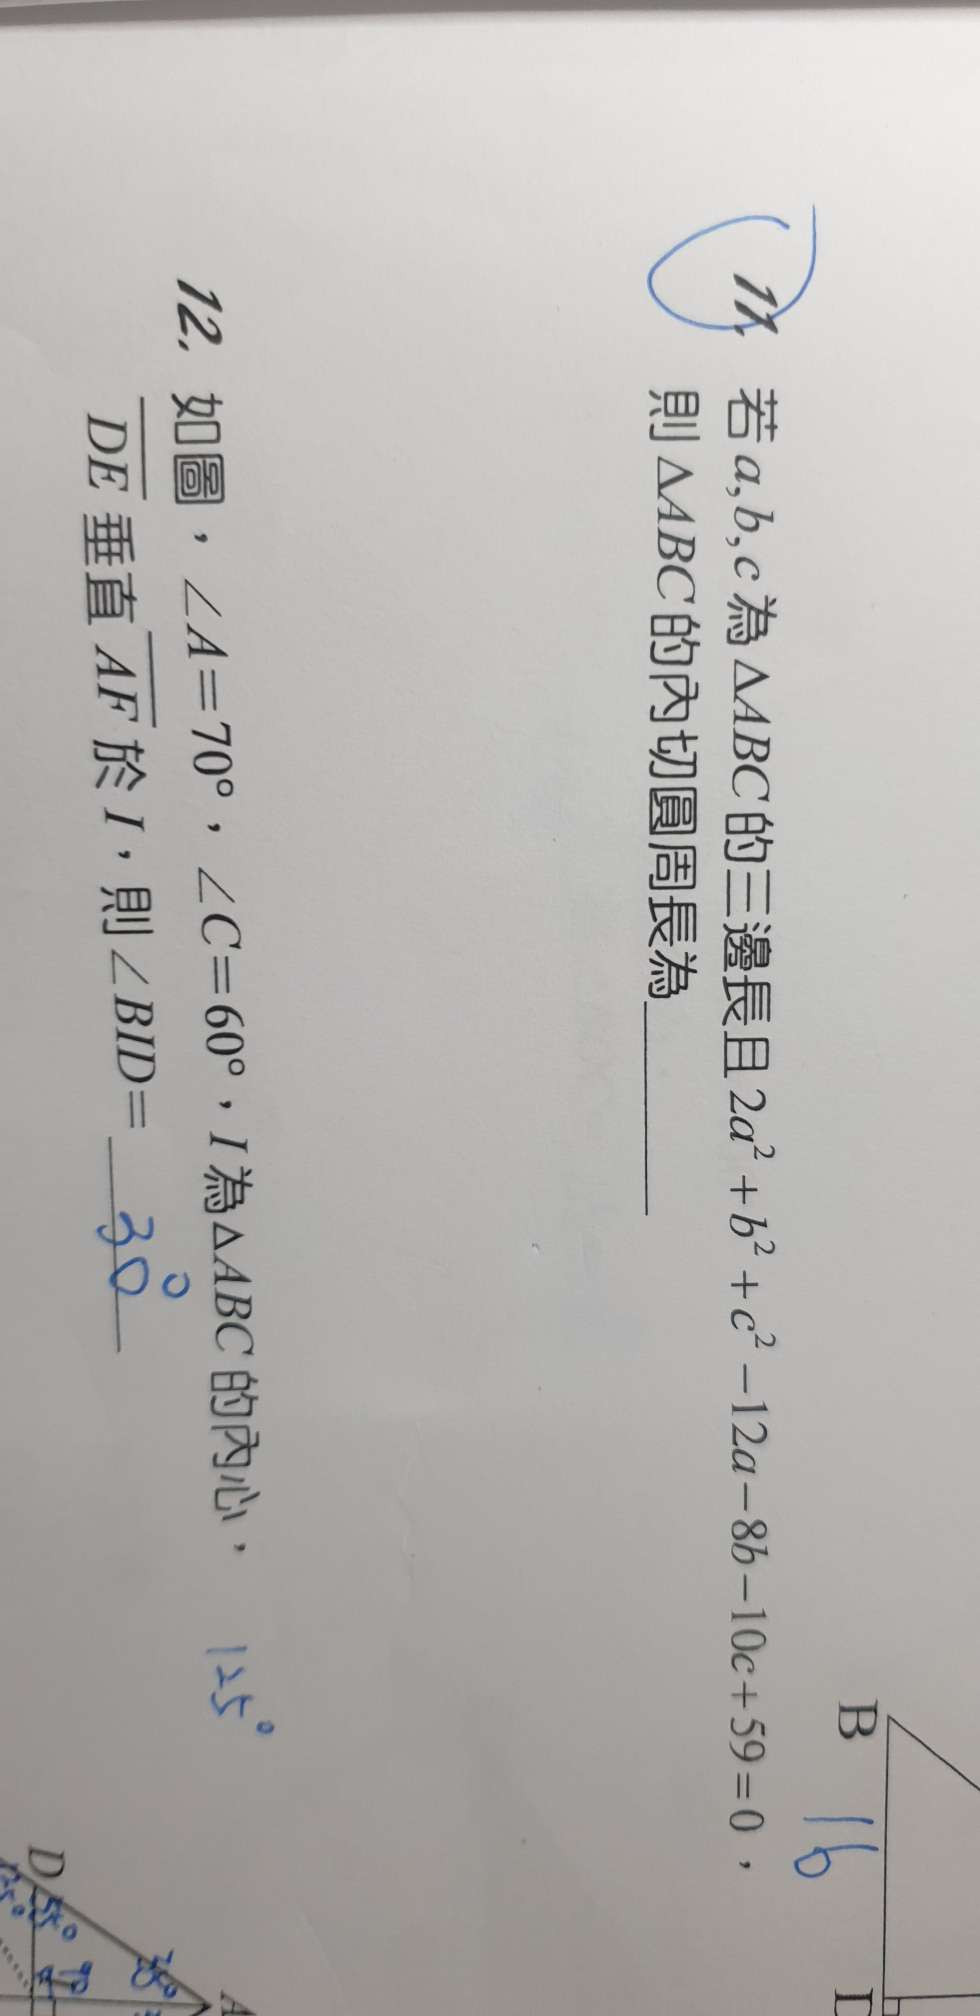 11. 若a,b,c為△ABC的三邊長且2a²+b²+c²−12a−8b−10c+59=0，
則△ABC的內切圓周長為
B
16
12. 如圖，∠A=70°，∠C=60°，I為△ABC的內心，
125°
DE垂直AF於I，則∠BID= 30°
A
35°
90
D
55°
125°